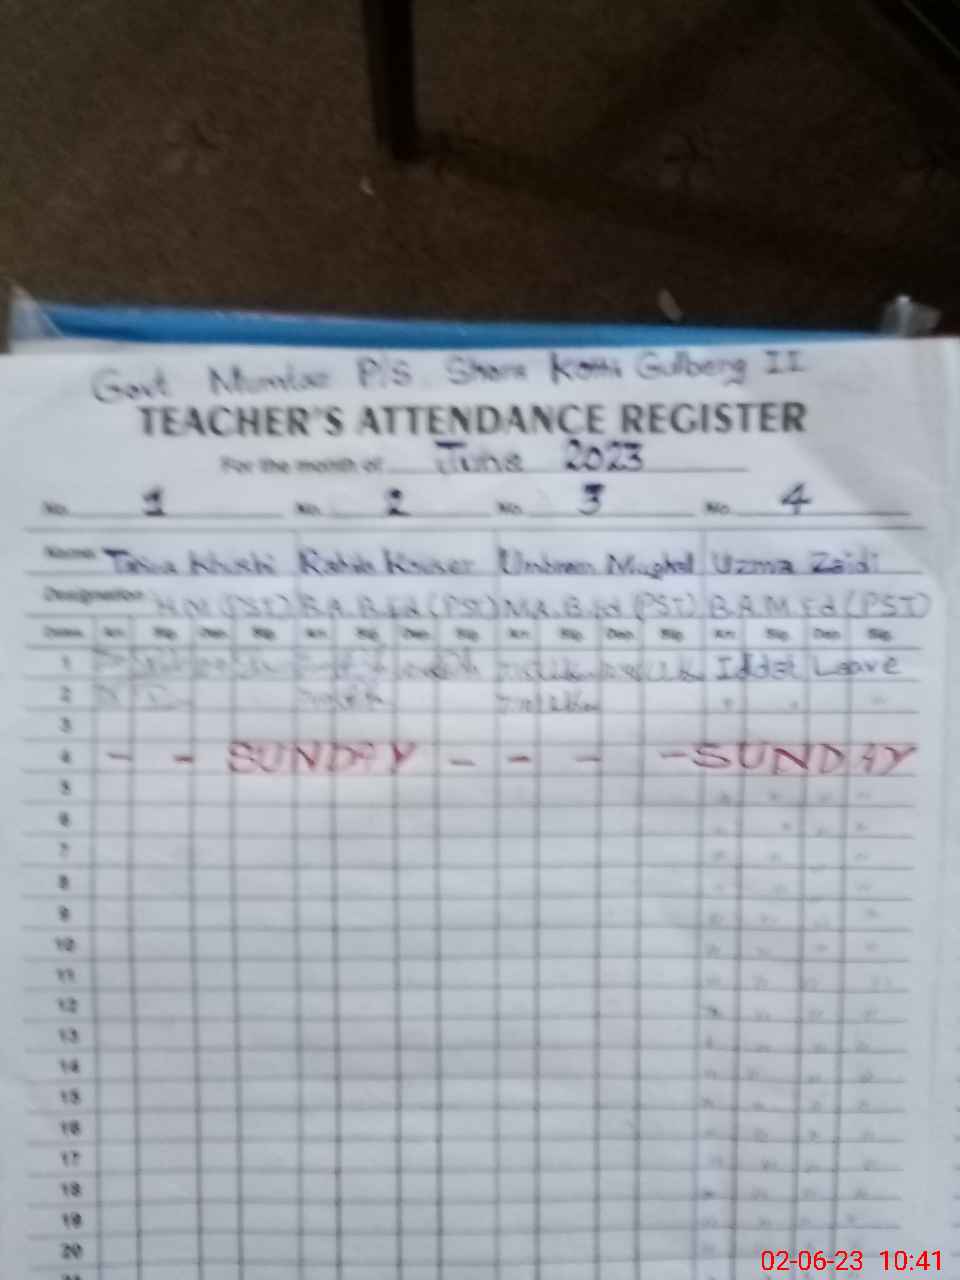 Govt Mumtaz P/S Shora Kothi Gulberg II
TEACHER'S ATTENDANCE REGISTER
For the month of June 2023
No. 1 No. 2 No. 3 No. 4
Name Khushi Kouser Umbreen Mughal Uzma Zaidi
Designation H.M (PST) B.A. B.Ed (PST) M.A. B.Ed (PST) B.A.M.Ed (PST)
Dates Arr. Sig. Dep. Sig. Arr. Sig. Dep. Sig. Arr. Sig. Dep. Sig. Arr. Sig. Dep. Sig.
1 Iddat Leave
2 " " "
3
4 - - SUNDAY - - - - SUNDAY
5 " " " "
6 " " " "
7 " " "
8 " " "
9 " " " "
10 " " " "
11 " " " "
12 " " " "
13 " " " "
14 " " " "
15 " " " "
16 " " " "
17 " " " "
18 " " " "
19 " " " "
20 " " " "
02-06-23 10:41